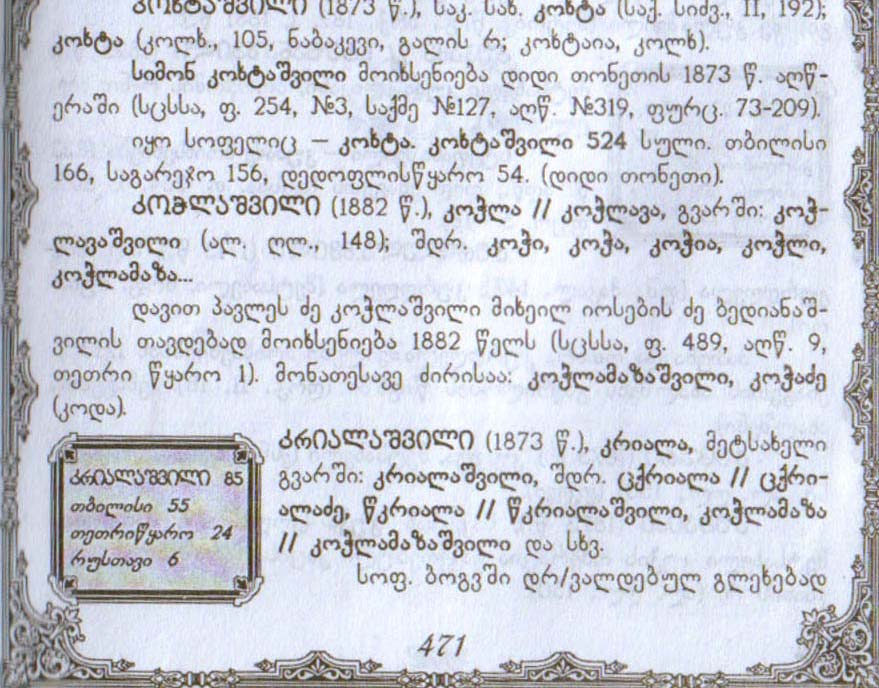 კოხტაშვილი (1873 წ.), საკ. სახ. კოხტა (საქ. სიძვ., II, 192);
კოხტა (კოლხ., 105, ნაბაკევი, გალის რ; კოხტაია, კოლხ).
სიმონ კოხტაშვილი მოიხსენიება დიდი თონეთის 1873 წ. აღწ-
ერაში (სცსსა, ფ. 254, №3, საქმე №127, აღწ. №319, ფურც. 73-209).
იყო სოფელიც – კოხტა. კოხტაშვილი 524 სული. თბილისი
166, საგარეჯო 156, დედოფლისწყარო 54. (დიდი თონეთი).
კოჭლაშვილი (1882 წ.), კოჭლა // კოჭლავა, გვარში: კოჭ-
ლავაშვილი (ალ. ღლ., 148); შდრ. კოჭი, კოჭა, კოჭია, კოჭლი,
კოჭლამაზა...
დავით პავლეს ძე კოჭლაშვილი მიხეილ იოსების ძე ბედიანაშ-
ვილის თავდებად მოიხსენიება 1882 წელს (სცსსა, ფ. 489, აღწ. 9,
თეთრი წყარო 1). მონათესავე ძირისაა: კოჭლამაზაშვილი, კოჭაძე
(კოდა).
კრიალაშვილი (1873 წ.), კრიალა, მეტსახელი
გვარში: კრიალაშვილი, შდრ. ცქრიალა // ცქრი-
ალაძე, წკრიალა // წკრიალაშვილი, კოჭლამაზა
// კოჭლამაზაშვილი და სხვ.
სოფ. ბოგვში დრ/ვალდებულ გლეხებად
კრიალაშვილი 85
თბილისი 55
თეთრიწყარო 24
რუსთავი 6
471